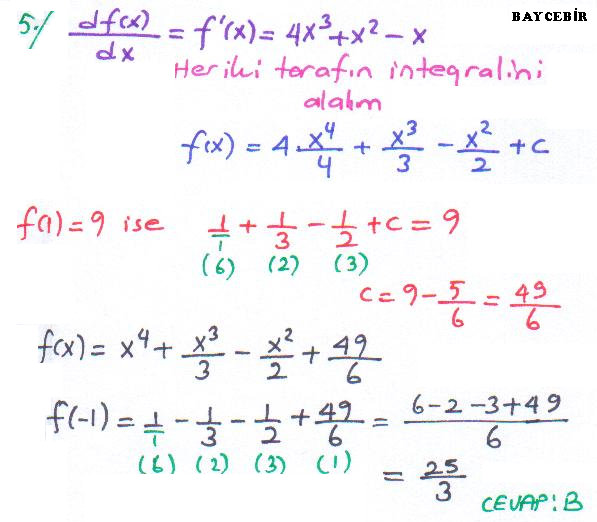 BAYCEBİR
5-/ df(x)/dx = f'(x) = 4x³+x² - x
Her iki tarafın integralini
alalım
f(x) = 4.x⁴/4 + x³/3 - x²/2 + c
f(1)=9 ise 1/1 + 1/3 - 1/2 + c = 9
(6) (2) (3)
c = 9 - 5/6 = 49/6
f(x) = x⁴ + x³/3 - x²/2 + 49/6
f(-1) = 1/1 - 1/3 - 1/2 + 49/6 = 6-2-3+49/6
(6) (2) (3) (1)
= 25/3
CEVAP: B